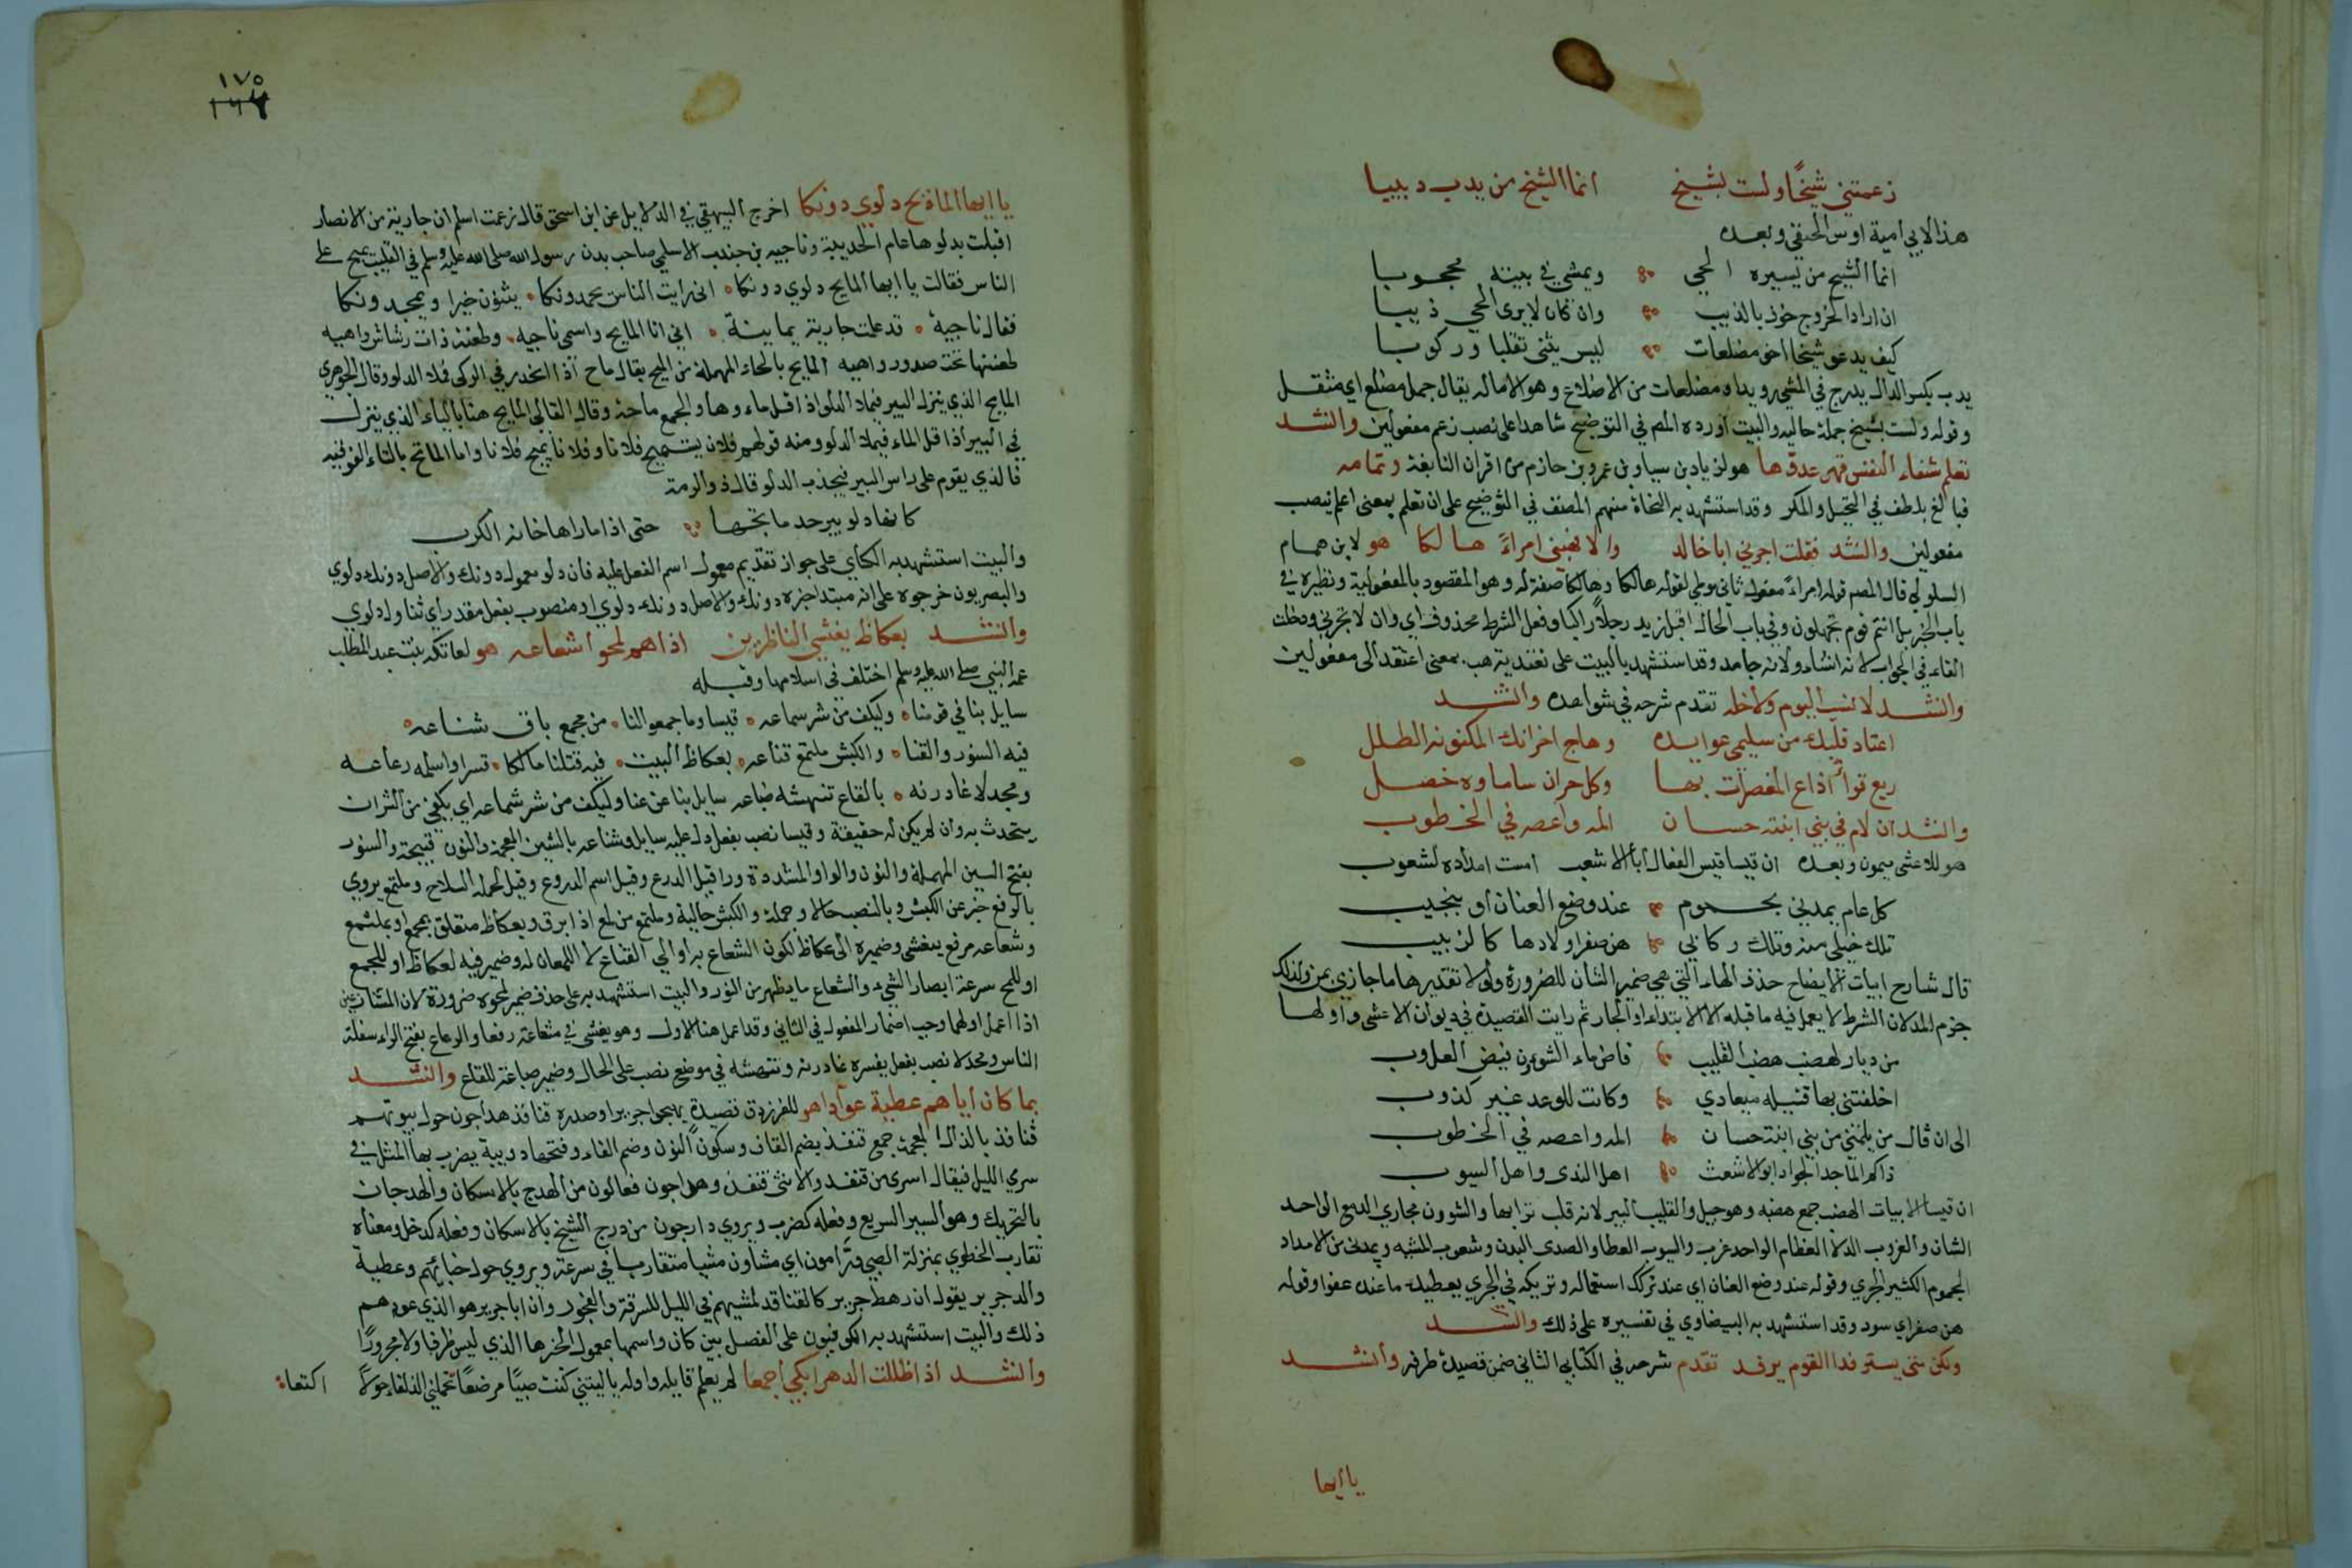 زعمتني شيخًا ولست بشيخ انما الشيخ من يدب دبيبا
هذا لابي امية اوس الحنفي وبعده
انما الشيخ من يسيره الحي ويمشي في بيته محجوبا
ان اراد الخروج خوف بالذيب وان كان لا يرى الحي ذيبا
كيف يدعى شيخا اخى مضلعات ليس يثنى تقلبا وركوبا
يدب بكسر الدال يدرج في المشي رويدا ومضلعات من الاضلاع وهو الاماله يقال جمل مضلع اي مثقل
وقوله ولست بشيخ جملة حاليه والبيت اورده المص في التوضيح شاهدا على نصب زعم مفعولين وانشد
تعلم شفاء النفس قهر عدوها هو لزياد بن سيار بن عمرو بن حازم من اقران النابغة وتمامه
فبالغ بلطف في التحيل والمكر وقد استشهد به النحاة منهم المصنف في التوضيح على ان تعلم بمعنى اعلم ينصب
مفعولين وانشد فقلت اجرني ابا خالد والا فهبني امراءً هالكا هو لابن همام
السلولي قال المص قوله امراءً مفعول ثاني موطي لقوله هالكا وهالكا صفة له وهو المقصود بالمفعولية ونظيره في
باب الخبر بل انتم قوم تجهلون وفي باب الحال اقبل زيد رجلاً راكبا وفعل الشرط محذوف اي وان لا تجرني ودخلت
الفاء في الجواب لانه انشاء ولانه جامد وقد استشهد بالبيت على تعدية هب بمعنى اعتقد الى مفعولين
وانشد لا نسب اليوم ولا خلة تقدم شرحه في شواهده وانشد
اعتاد قلبك من سليمى عوايده وهاج احزانك المكنونه الطلل
ربع قواءٌ اذاع المعصرات بها وكل حران سار ماوه خضل
وانشد ان لام في بني ابنة حسان المه واعصه في الخطوب
هو للاعشى ميمون وبعده ان قيسا قيس الفعال ابا الاشعب امست امداده لشعوب
كل عام يمدني بجموم عند وضع العنان او بنجيب
تلك خيلي منه وتلك ركابي هن صفر اولادها كالزبيب
قال شارح ابيات الايضاح حذف الهاء التي هي ضمير الشان للضرورة ولولا تقديرها ما جازي بمن ولذلك
جزم المه لان الشرط لا يعمل فيه ما قبله الا الابتداء او الجار ثم رايت القصيدة في ديوان الاعشى واولها
من ديار لهضب هضب القليب فاض ماء الشوون فيض الغروب
اخلفتني بها قتيله ميعادي وكانت للوعد غير كذوب
الى ان قال من يلمني من بني ابنة حسان المه واعصه في الخطوب
ذاكم الماجد الجواد ابو الاشعث اهل الندى واهل السيوب
ان قيسا الابيات الهضب جمع هضبه وهو جبل والقليب البير لانه قلب ترابها والشوون مجاري الدمع الواحد
الشان والغروب الدلا العظام الواحد غرب والسيوب العطا والصدى البدن وشعوب المنيه ويمدني من الامداد
الجموم الكثير الجري وقوله عند وضع العنان اي عند ترك استعماله وتركه في الجري يعطيك ما عنده عفوا وقوله
هن صفر اي سود وقد استشهد به البيضاوي في تفسيره على ذلك وانشد
ولكن متى يسترفد القوم يرفد تقدم شرحه في الكتاب الثاني ضمن قصيدة طرفه وانشد
يا ايها
١٧٥
يا ايها المايح دلوي دونكا اخرج البيهقي في الدلايل عن ابن اسحق قال زعمت اسلم ان جارية من الانصار
اقبلت بدلوها عام الحديبية وناجيه بن جندب الاسلمي صاحب بدن رسول الله صلى الله عليه وسلم في القليب يميح على
الناس فقالت يا ايها المايح دلوي دونكا انى رايت الناس يحمدونكا يثنون خيرا ويمجدونكا
فقال ناجية قد علمت جارية يمانية اني انا المايح واسمى ناجيه وطعنة ذات رشاش واهيه
طعنتها تحت صدور واهيه المايح بالحاء المهملة من الميح يقال ماح اذا انحدر في الركى فملا الدلو وقال الجوهري
المايح الذي ينزل البير فيملا الدلو اذا قل ماءوها والجمع ماحة وقال القالي المايح هنا بالياء الذي ينزل
في البير اذا قل الماء فيملا الدلو ومنه قولهم فلان يستميح فلانا وفلانا يميح فلانا واما الماتح بالتاء الفوقيه
فالذي يقوم على راس البير فيجذب الدلو قال ذو الرمة
كانها دلو بير جد ماتحها حتى اذا ما راها خانه الكرب
والبيت استشهد به الكساي على جواز تقديم معمول اسم الفعل عليه فان دلو معمول دونك والاصل دونك دلوي
والبصريون خرجوه على انه مبتدا خبره دونك والاصل دونك دلوي او منصوب بفعل مقدر اي تناول دلوي
وانشد بعكاظ يغشي الناظرين اذا هم لمحوا شعاعه هو لعاتكه بنت عبد المطلب
عمة النبي صلى الله عليه وسلم اختلف في اسلامها وقبله
سايل بنا في قومنا وليكف من شر سماعه قيسا وما جمعوا لنا من مجمع باق شناعه
فيه السنور والقنا والكبش ملتمع قناعه بعكاظ البيت فيه قتلنا مالكا قسرا واسلمه رعاعه
ومجدلا غادرنه بالقاع تنهشه ضباعه سايل بنا عن عنا وليكف من شر سماعه اي يكفي من الشر ان
يتحدث به وان لم يكن له حقيقة وقيسا نصب بفعل دل عليه سايل وشناعه بالشين المعجمة والنون قبيحة والسنور
بفتح السين المهملة والنون والواو المشددة ورا قيل الدرع وقيل اسم الدروع وقيل لجملة السلاح وملتمع يروي
بالرفع خبر عن الكبش وبالنصب حالا وجملة والكبش حالية وملتمع من لمع اذا برق وبعكاظ متعلق بمجمع او بملتمع
وشعاعه مرفوع بيغشي وضميره الى عكاظ لكون الشعاع به او الي القناع لا اللمعان له وضمير فيه لعكاظ او للجمع
او للمح سرعة ابصار الشيء والشعاع ما يظهر من النور والبيت استشهد به على حذف ضمير لمحوه ضرورة لان المتنازعين
اذا اعمل اولهما وجب اضمار المفعول في الثاني وقد اعمل هنا الاول وهو يغشي في شعاعه رفعا والرعاع بفتح الراء سفلة
الناس ومجدلا نصب بفعل يفسره غادرنه وتنهشه في موضع نصب على الحال وضمير ضباعه للقاع وانشد
بما كان اياهم عطية عوّدا هو للفرزدق قصيدة يهجوا جريرا وصدره قنافذ هداجون حول بيوتهم
قنافذ بالذال المعجمة جمع قنفذ بضم القاف وسكون النون وضم الفاء وفتحها دويبة يضرب بها المثل في
سري الليل فيقال اسرى من قنفذ والانثى قنفذة وهداجون فعالون من الهدج بالاسكان والهدجان
بالتحريك وهو السير السريع وفعله كضرب ويروي دارجون من درج الشيخ بالاسكان وفعله كدخل ومعناه
تقارب الخطوي بمنزلة الصبي ودرّامون اي مشاون مشيا متقاربا في سرعة ويروي حول خبائهم وعطية
والد جرير يقول ان رهط جرير كالقنافذ لمشيهم في الليل للسرقة والفجور وان ابا جرير هو الذي عودهم
ذلك والبيت استشهد به الكوفيون على الفصل بين كان واسمها بمعمول الخبر الذي ليس ظرفا ولا مجرورًا
وانشد اذا ظللت الدهر ابكي اجمعا لم يعلم قايله واوله يا ليتني كنت صبيًا مرضعًا تحملني الذلفاء حولًا
اكتعا